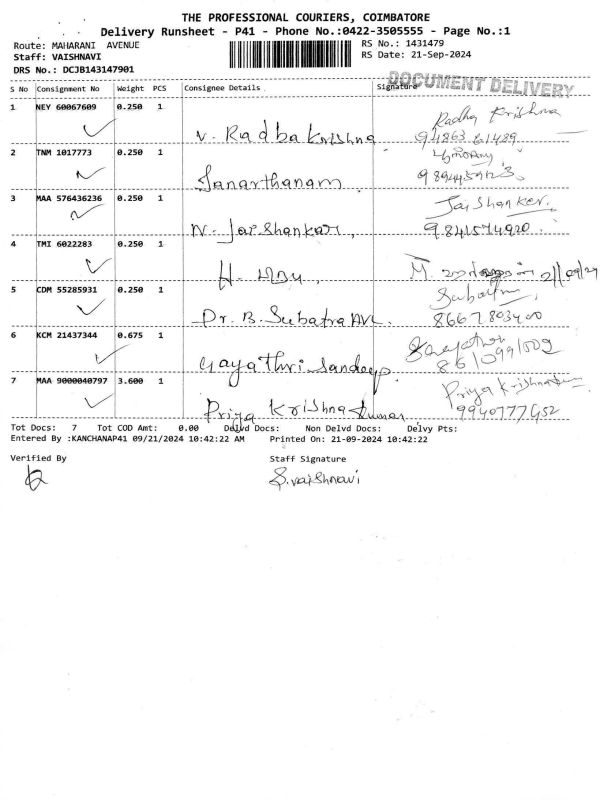 THE PROFESSIONAL COURIERS, COIMBATORE
Delivery Runsheet - P41 - Phone No.:0422-3505555 - Page No.:1
Route: MAHARANI AVENUE RS No.: 1431479
Staff: VAISHNAVI RS Date: 21-Sep-2024
DRS No.: DCJB143147901
DOCUMENT DELIVERY
S No Consignment No Weight PCS Consignee Details Signature
1 NEY 60067609 0.250 1 V. Radha Krishna Radha Krishna
94863 61439
2 TNM 1017773 0.250 1 Janarthanam
3 MAA 576436236 0.250 1 N. Jaishankar, Jai Shanker.
9841574920.
4 TMI 6022283 0.250 1 H. M. 21/09/24
5 CDM 55285931 0.250 1 Dr. B. Subatra
8667803400
6 KCM 21437344 0.675 1 Gayathri Sandeep.
8610991509
7 MAA 9000040797 3.600 1 Priya Krishna Kumar Priya Krishnakum
Tot Docs: 7 Tot COD Amt: 0.00 Delvd Docs: Non Delvd Docs: Delvy Pts:
Entered By :KANCHANAP41 09/21/2024 10:42:22 AM Printed On: 21-09-2024 10:42:22
Verified By Staff Signature
S. Vaishnavi